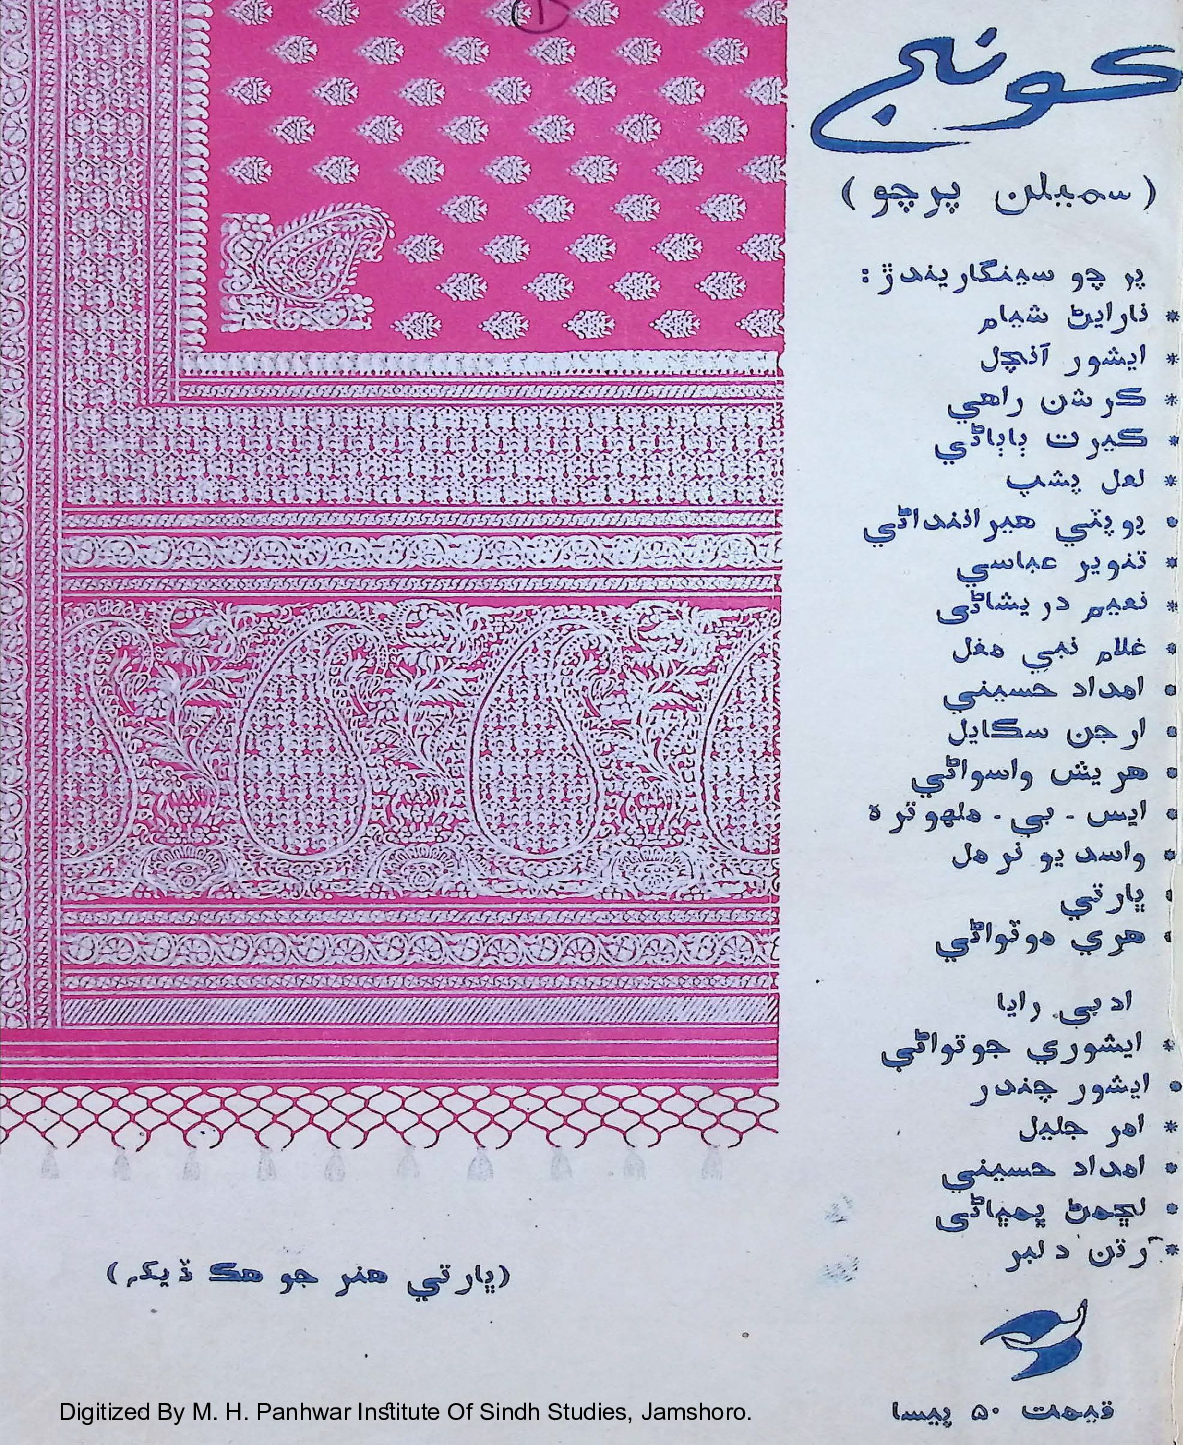 ڪونج
(سميلن پرچو)
پرچو سينگاريندڙ :
* نارايڻ شيام
* ايشور آنچل
* ڪرشن راهي
* ڪيرت ٻاٻاڻي
* لعل پشپ
* پوپٽي هيراننداڻي
* تنوير عباسي
* نعيم دريشاڻي
* غلام نبي مغل
* امداد حسيني
* ارجن سڪايل
* هريش واسواڻي
* ايس - بي - ملهوترہ
* واسديو نرمل
* ڀارتي
* هري موٽواڻي
ادبي رايا
* ايشوري جوتواڻي
* ايشور چندر
* امر جليل
* امداد حسيني
* لڇمڻ ڀمڀاڻي
* رتن دلبر
(ڀارتي هنر جو هڪ ڏيک)
قيمت ۵۰ پيسا
Digitized By M. H. Panhwar Institute Of Sindh Studies, Jamshoro.